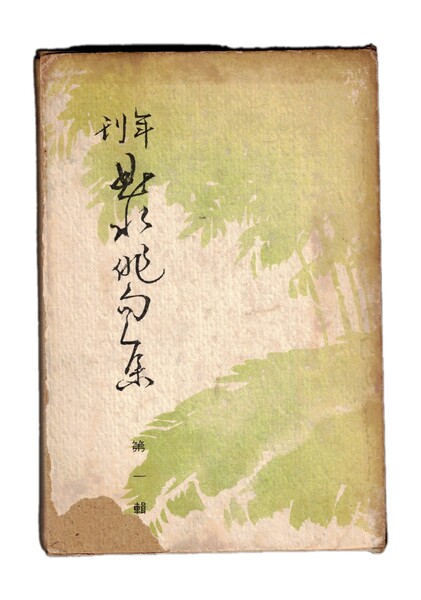 年刊
曲水俳句集
第一輯